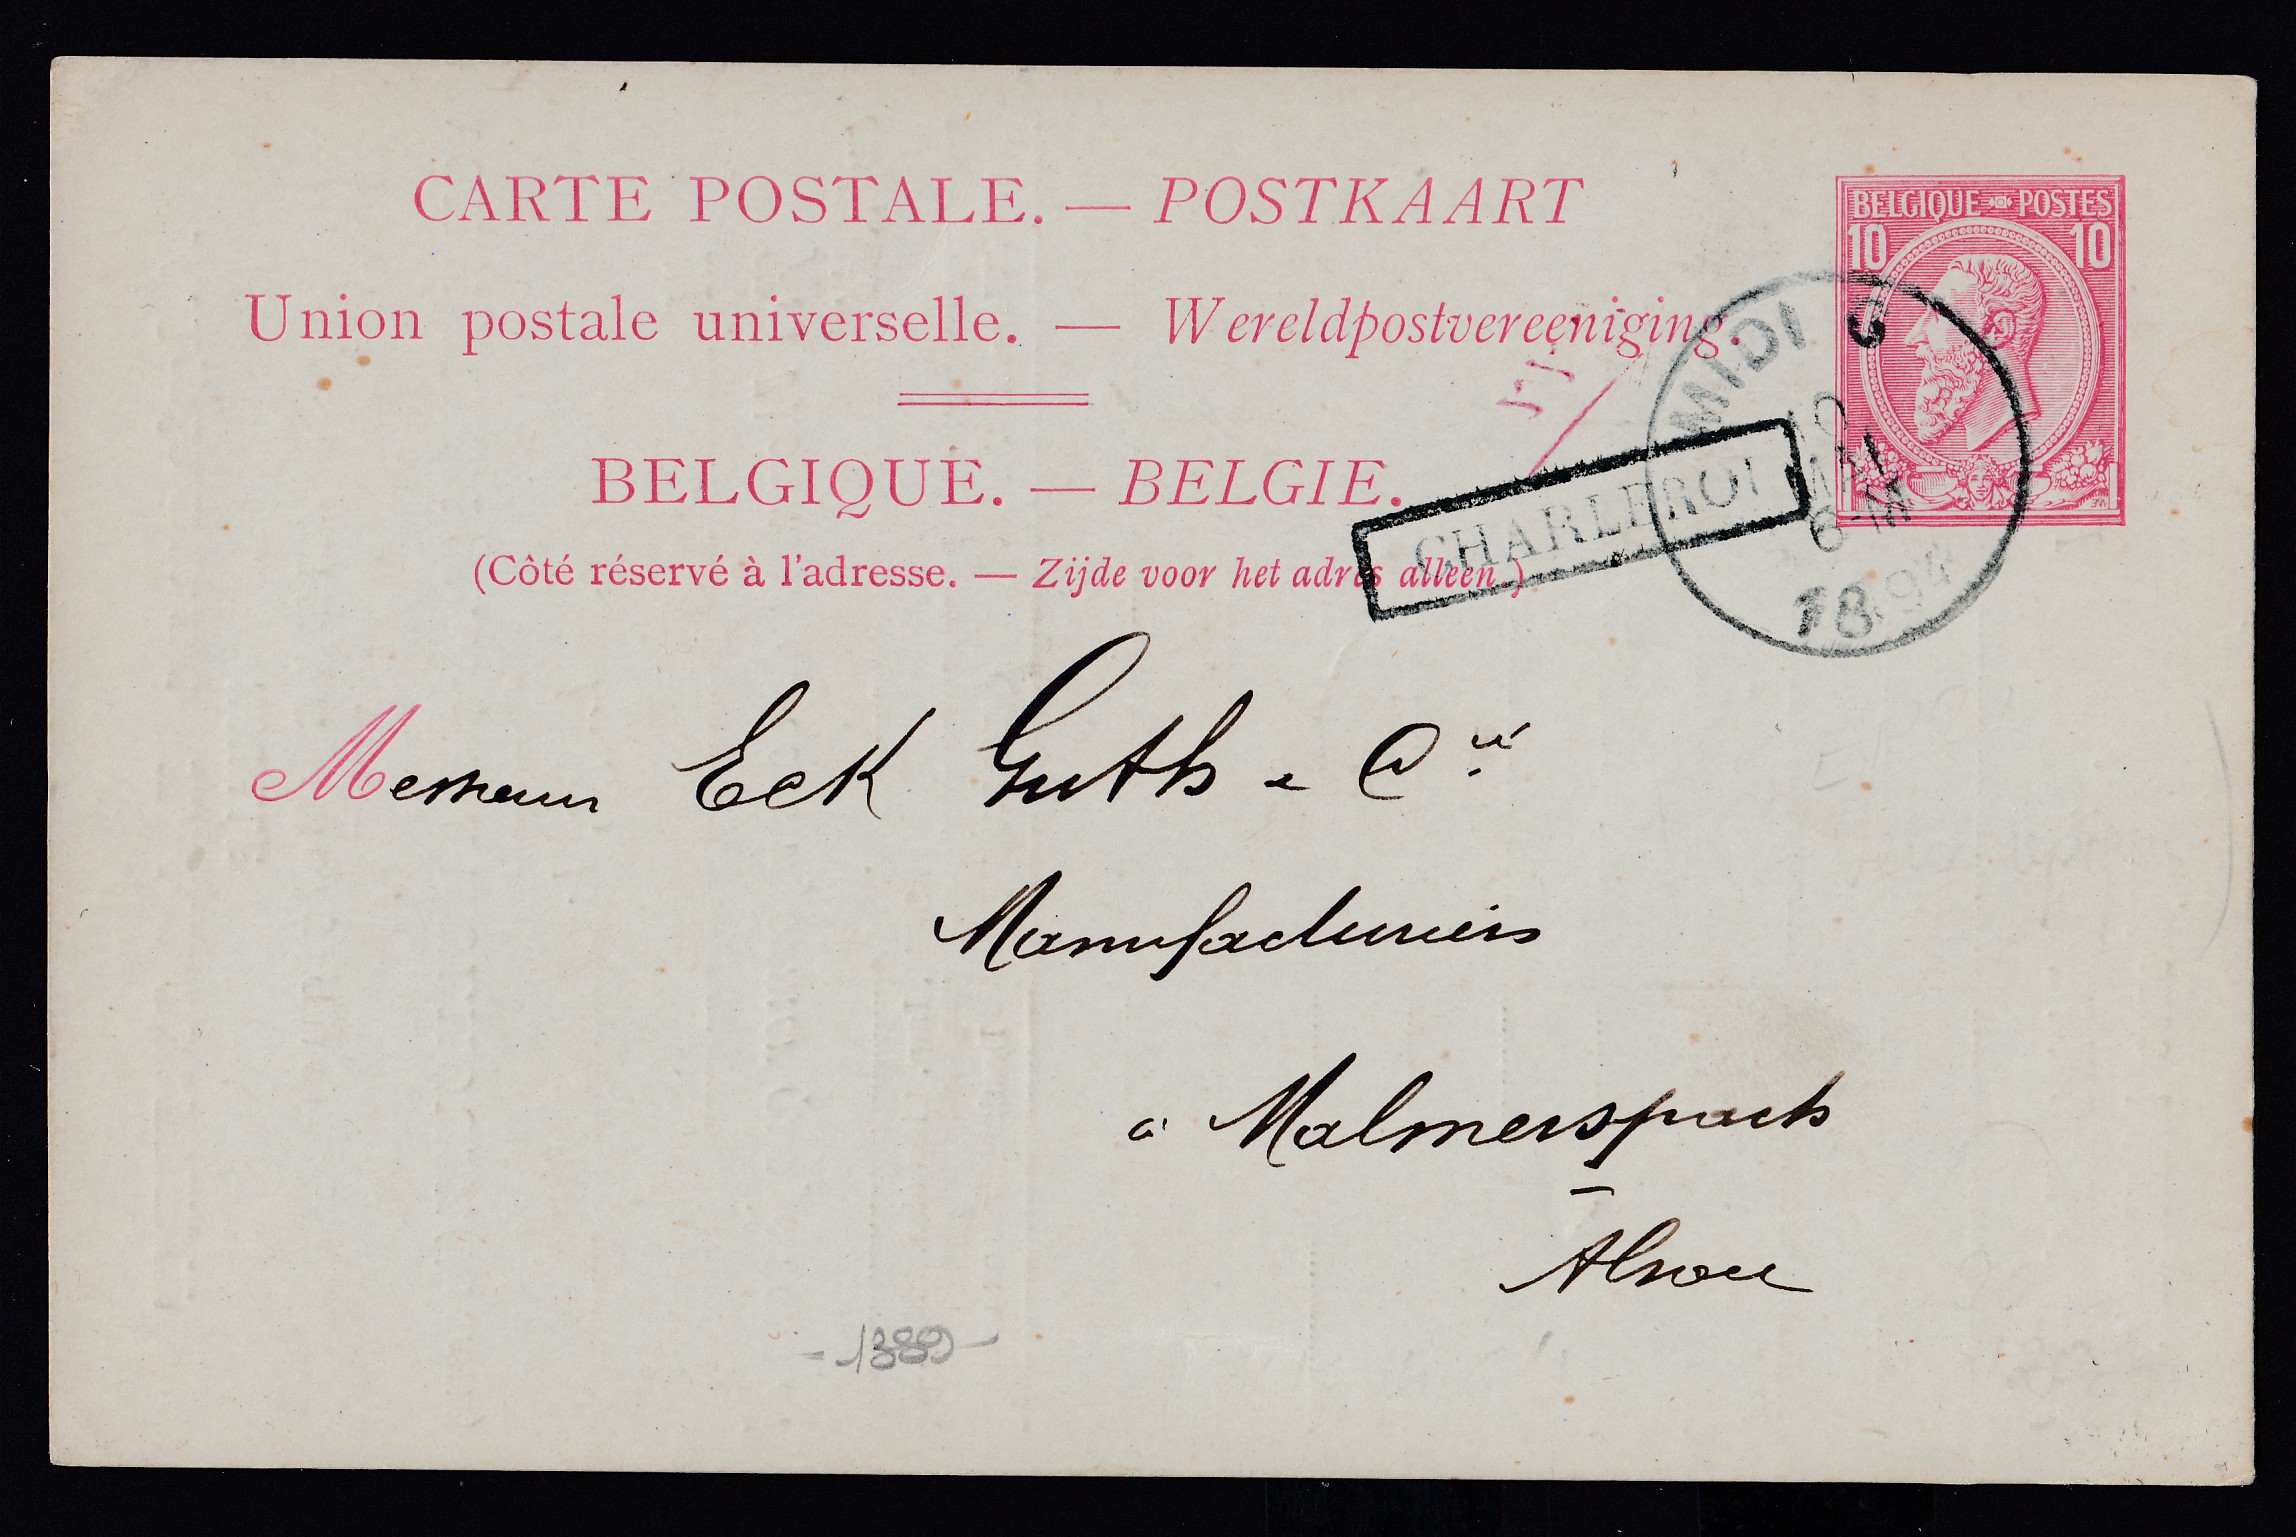 CARTE POSTALE. — POSTKAART
BELGIQUE POSTES
10 10
Union postale universelle. — Wereldpostvereeniging.
MIDI
10
MAI
6-M
1894
BELGIQUE. — BELGIE.
CHARLEROI
(Côté réservé à l'adresse. — Zijde voor het adres alleen.)
Messieurs Eck Guth & Cie
Manufacturiers
à Malmerspach
Alsace
- 1389 -